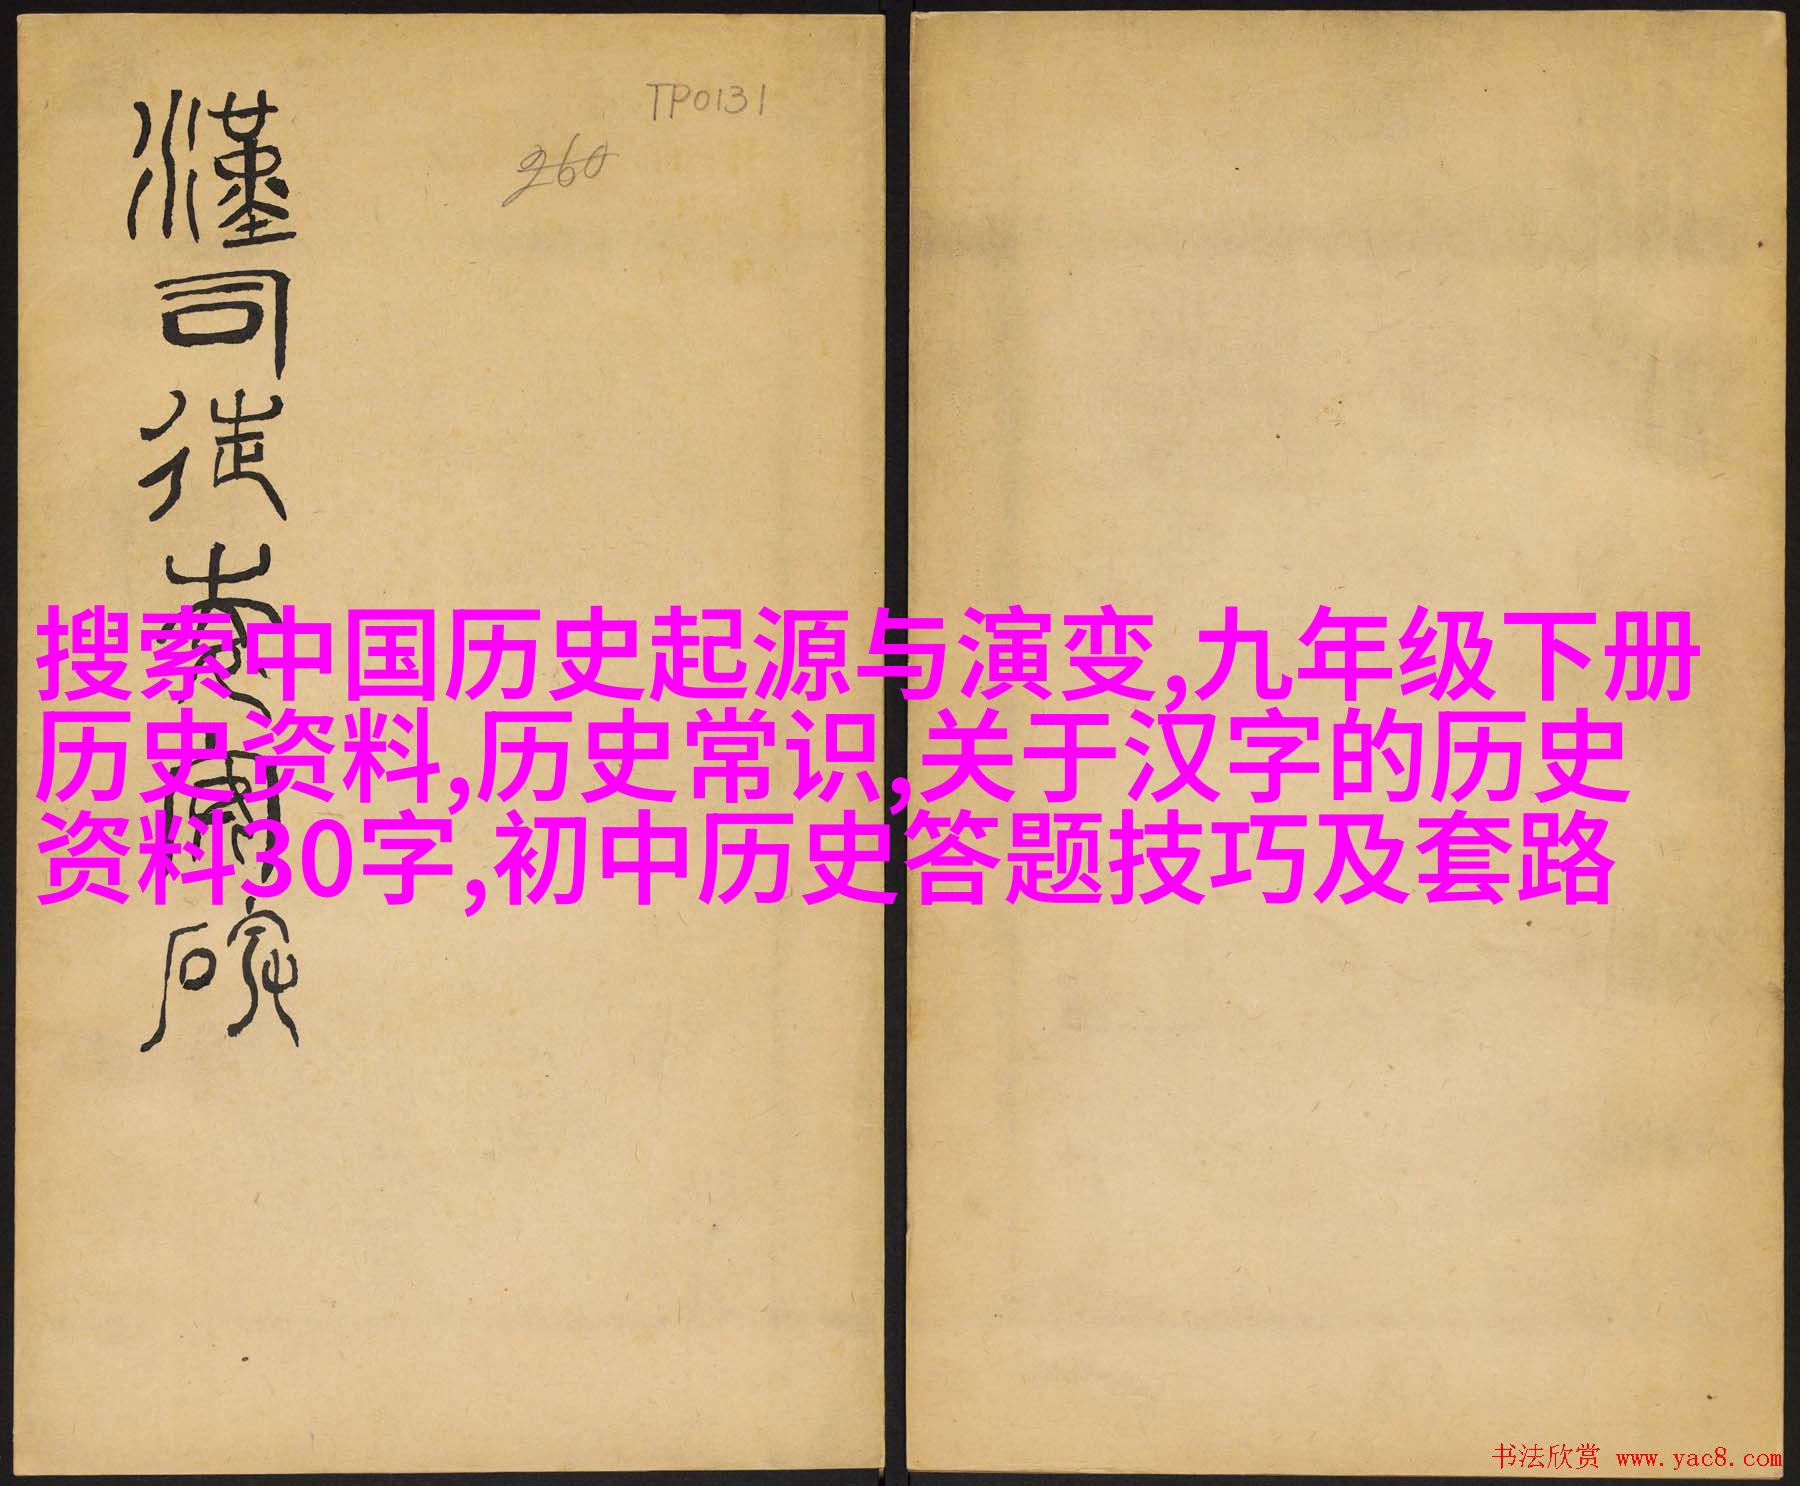 TP0131
260
漢司徒袁安碑
搜索中国历史起源与演变,九年级下册
历史资料,历史常识,关于汉字的历史
资料30字,初中历史答题技巧及套路
书法欣赏 www.yac8.com